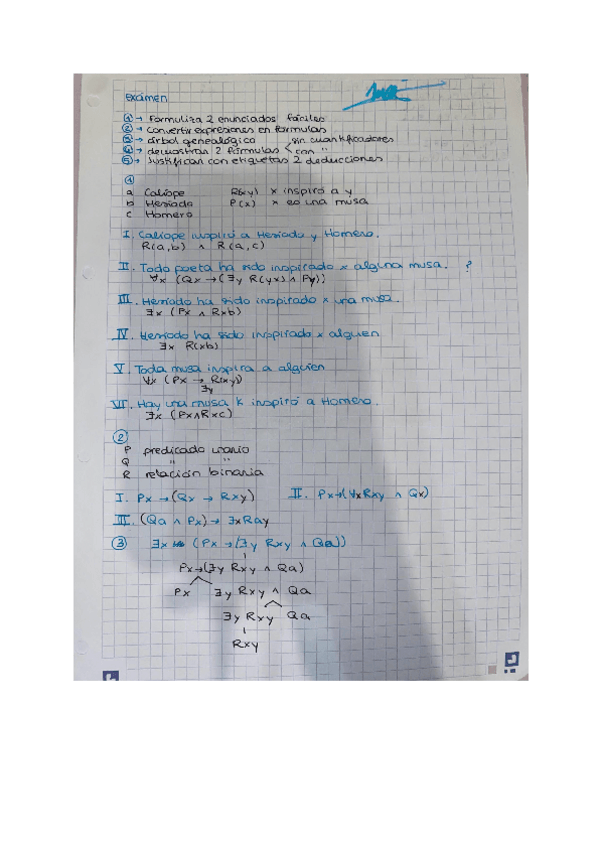 Exámen
① → Formuliza 2 enunciados fáciles
② → Convertir expresiones en formulas
③ → árbol genealógico
④ → demostrar 2 formulas < sin cuantificadores
con "
⑤ → Justifican con etiquetas 2 deducciones
①
a Caliope R(xy) x inspiró a y
b Hesíodo P(x) x es una musa
c Homero
I. Caliope inspiró a Hesíodo y Homero.
R(a,b) ∧ R(a,c)
II. Todo poeta ha sido inspirado x alguna musa. ?
∀x (Qx → (∃y R(yx) ∧ Py))
III. Hesíodo ha sido inspirado x una musa.
∃x (Px ∧ Rxb)
IV. Hesíodo ha sido inspirado x alguien
∃x R(xb)
V. Toda musa inspira a alguien
∀x (Px → R(xy))
∃y
VI. Hay una musa k inspiró a Homero.
∃x (Px∧Rxc)
②
P predicado unario
Q " "
R relación binaria
I. Px → (Qx → Rxy) II. Px→(∀xRxy ∧ Qx)
III. (Qa ∧ Px) → ∃xRay
③ ∃x (Px → (∃y Rxy ∧ Qa))
Px→(∃y Rxy ∧ Qa)
Px ∃y Rxy ∧ Qa
∃y Rxy Qa
Rxy